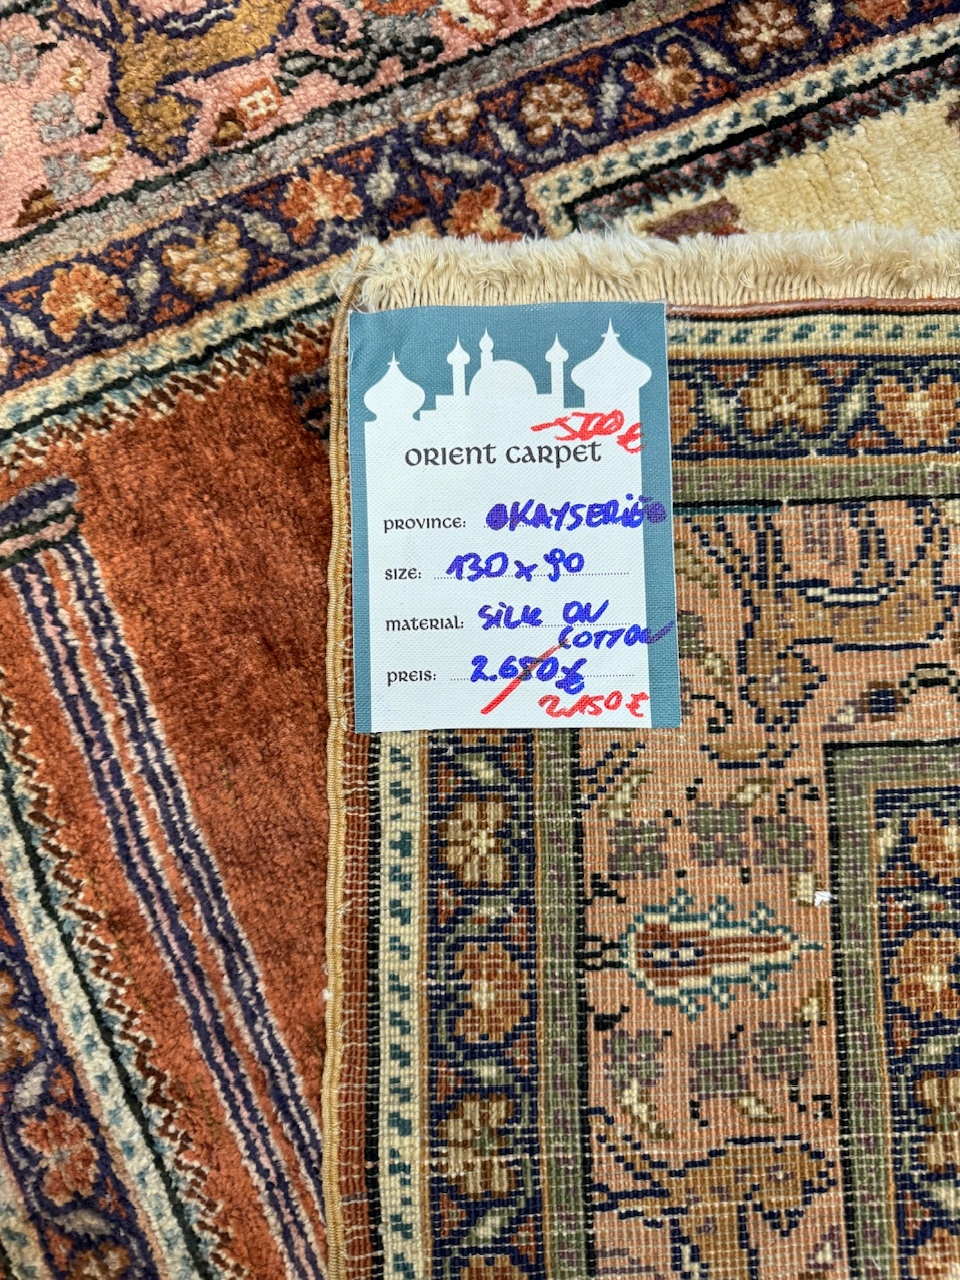 -500€
ORIENT CARPET
PROVINCE: KAYSERI
SIZE: 130 x 90
MATERIAL: SILK ON
COTTON
PREIS: 2.650€
2.150€